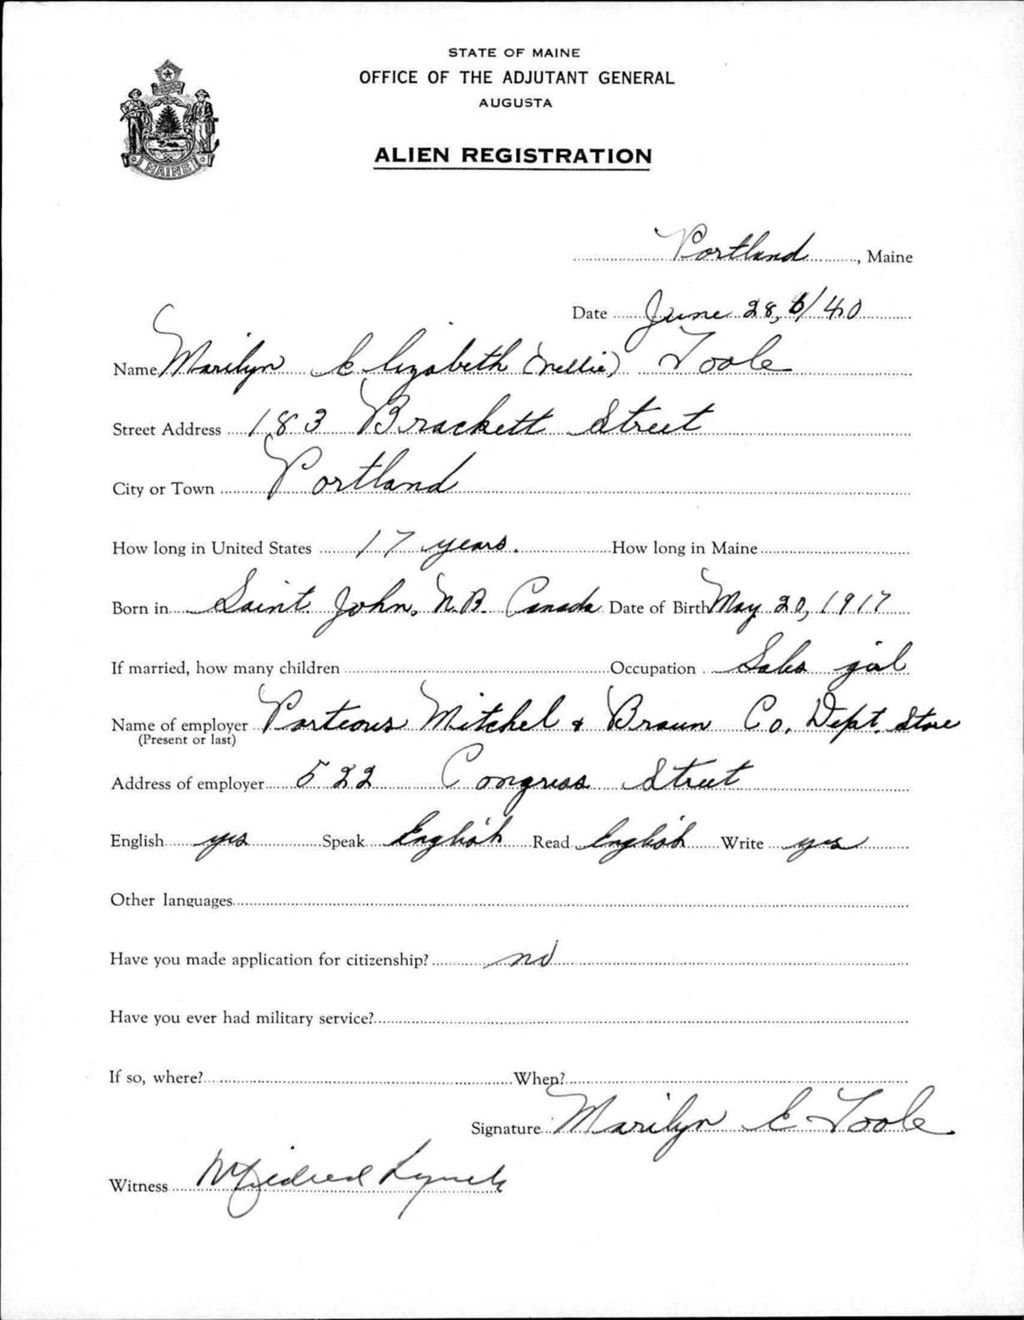 STATE OF MAINE
OFFICE OF THE ADJUTANT GENERAL
AUGUSTA
ALIEN REGISTRATION
MAINE
Portland, Maine
Date June 28, 6/40
Name Marilyn Elizabeth (Nellie) Toole
Street Address 183 Brackett Street
City or Town Portland
How long in United States 17 years. How long in Maine
Born in Saint John, N.B. Canada Date of Birth May 20, 1917
If married, how many children Occupation Sales girl
Name of employer Porteous Mitchel & Braun Co. Dept. Store
(Present or last)
Address of employer 522 Congress Street
English yes Speak English Read English Write yes
Other languages
Have you made application for citizenship? no
Have you ever had military service?
If so, where? When?
Signature Marilyn E Toole
Witness Mildred Lynch